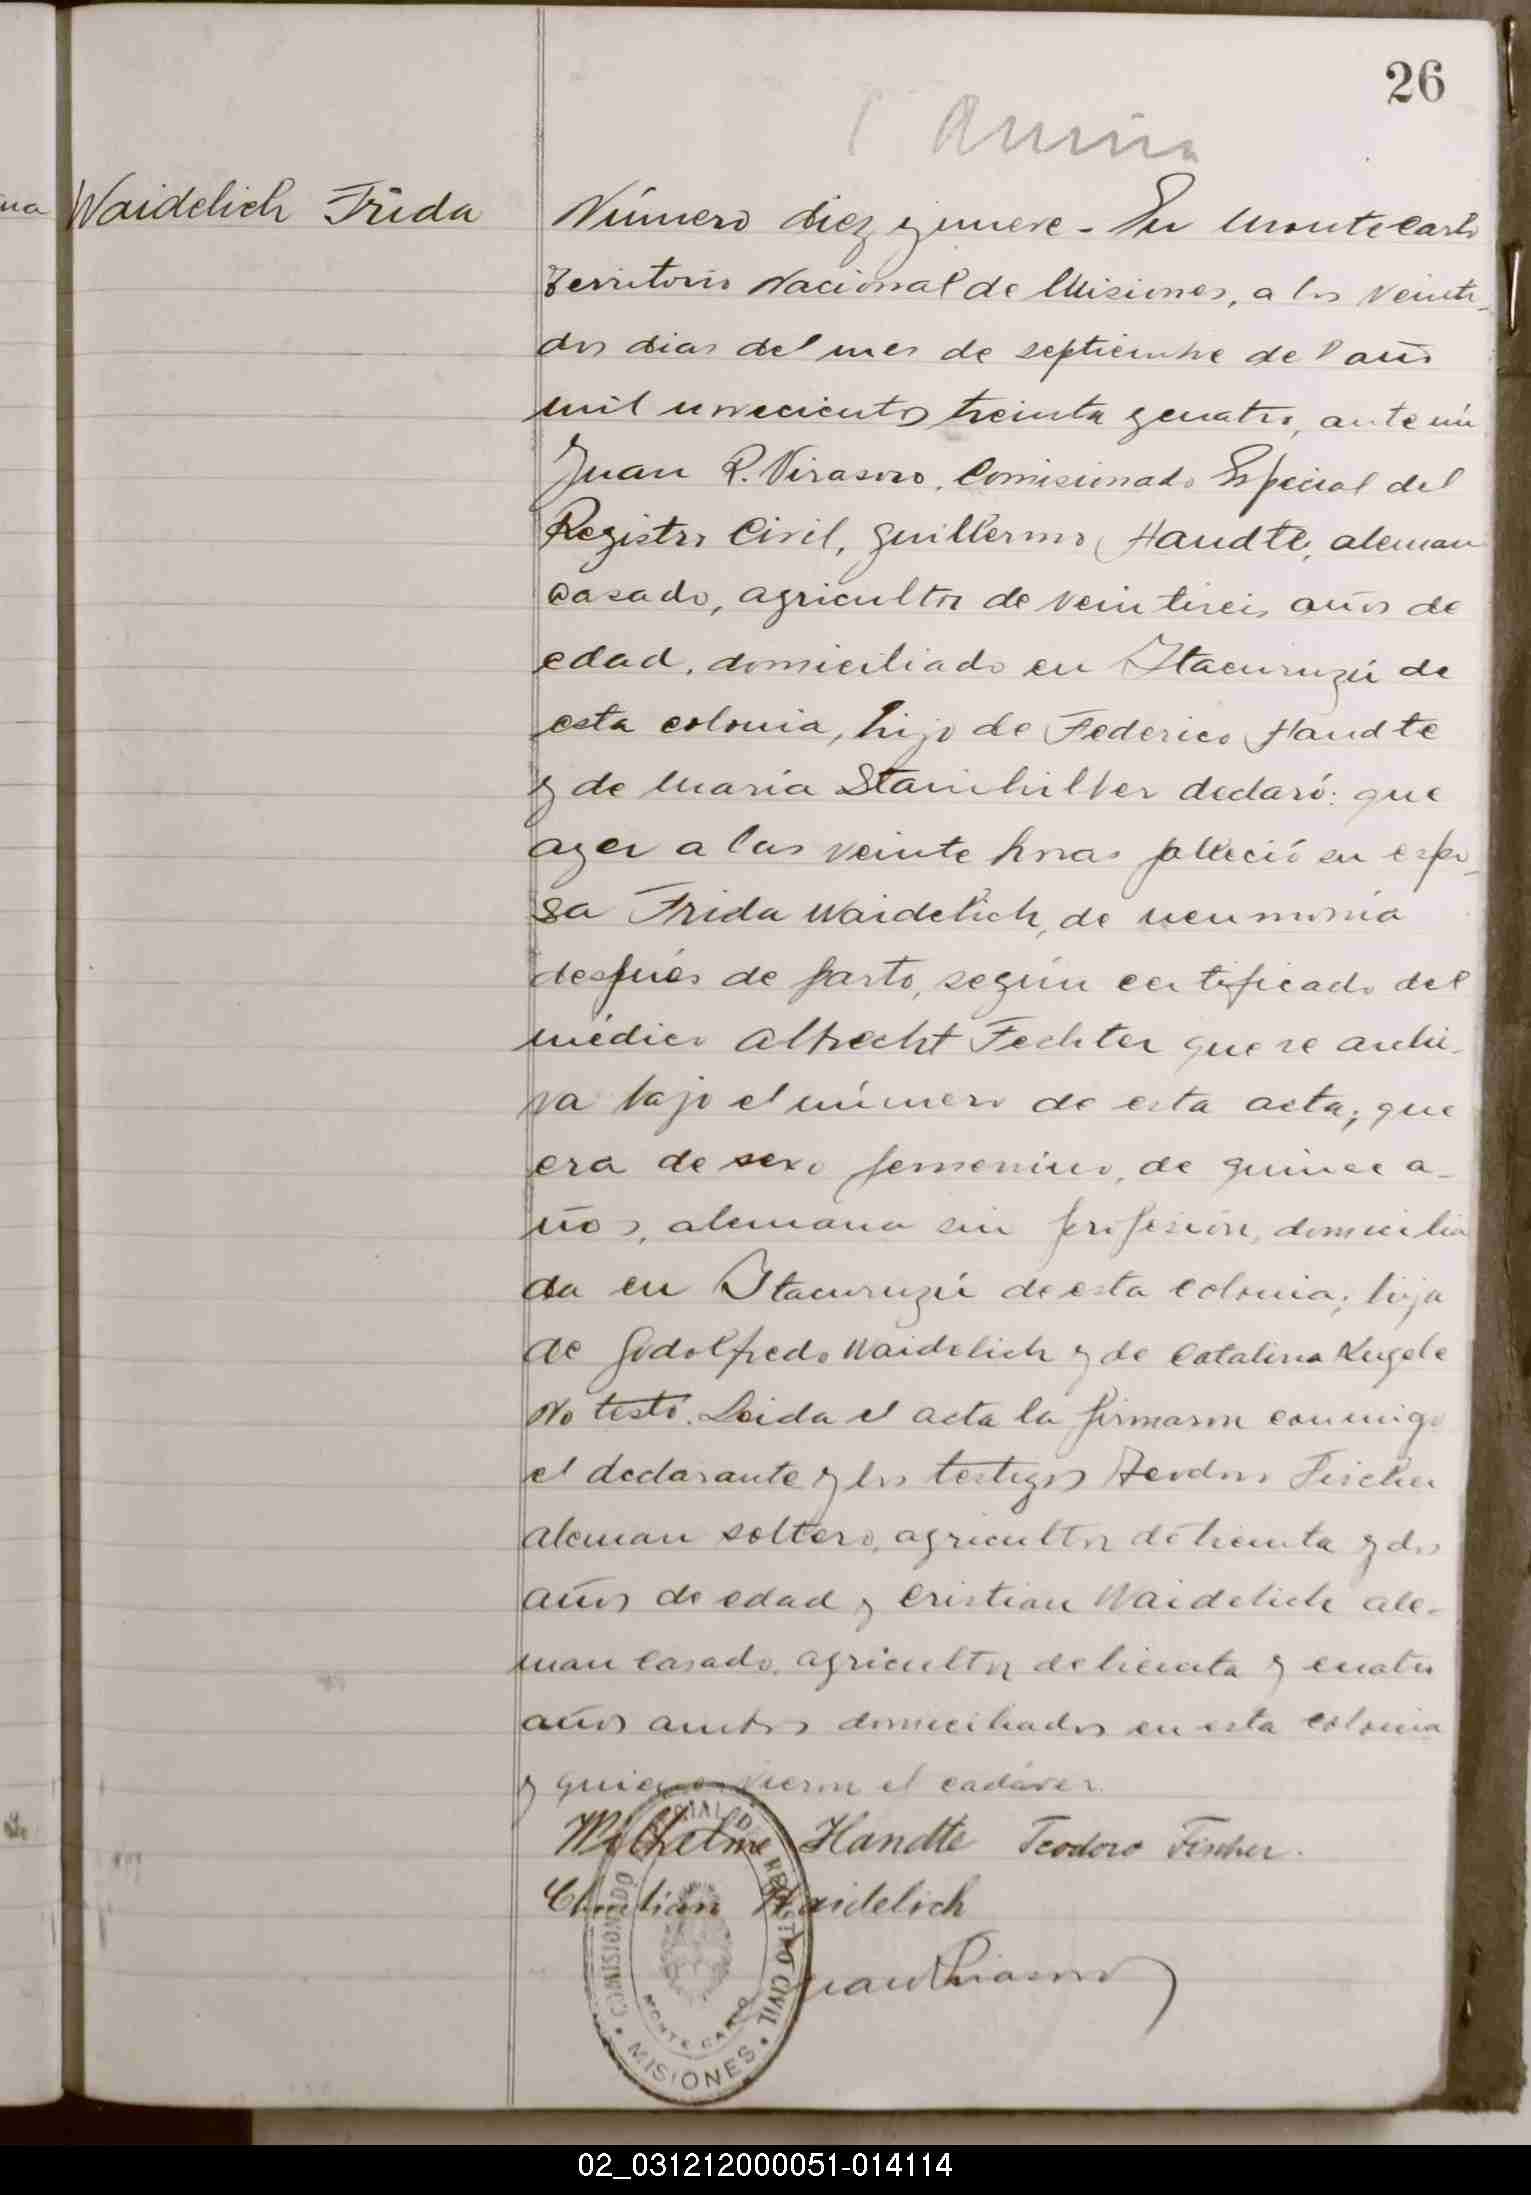 26
Waidelich Frida
Número diez y nueve - En Monte Carlo
Territorio Nacional de Misiones, a los veinti-
dos dias del mes de septiembre del año
mil novecientos treinta y cuatro, ante mí
Juan R. Virasoro, Comisionado Especial del
Registro Civil, Guillermo Handte, aleman
casado, agricultor de veintiseis años de
edad, domiciliado en Itacuruzú de
esta colonia, hijo de Federico Handte
y de María Stainhilber declaró: que
ayer a las veinte horas falleció su espo-
sa Frida Waidelich, de neumonía
después de parto, según certificado del
médico Albrecht Fechter que se archi-
va bajo el número de esta acta; que
era de sexo femenino, de quince a-
ños, alemana sin profesión, domicilia
da en Itacuruzú de esta colonia; hija
de Godolfredo Waidelich y de Catalina Kugele
No testó. Leida el acta la firmaron conmigo
el declarante y los testigos Teodoro Fischer
aleman soltero, agricultor de treinta y dos
años de edad y Cristian Waidelich ale-
man casado, agricultor de treinta y cuatro
años ambos domiciliados en esta colonia
y quienes vieron el cadáver.
Wilhelme Handte Teodoro Fischer.
Christian Waidelich
Juan Virasoro
COMISIONADO ESPECIAL DEL REGISTRO CIVIL
MONTE CARLO
MISIONES
02_031212000051-014114